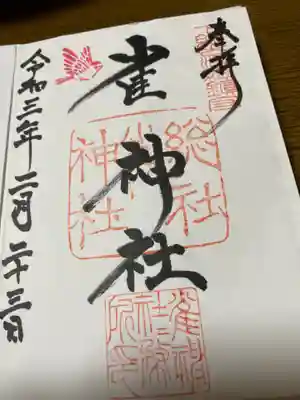 奉拝
雀神社
総社
神社
令和三年二月二十三日